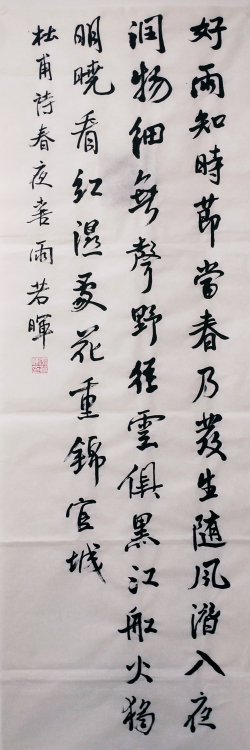 好雨知時節當春乃發生随風潛入夜
潤物細無聲野徑雲俱黑江船火獨
明曉看紅濕處花重錦官城
杜甫詩春夜喜雨若暉